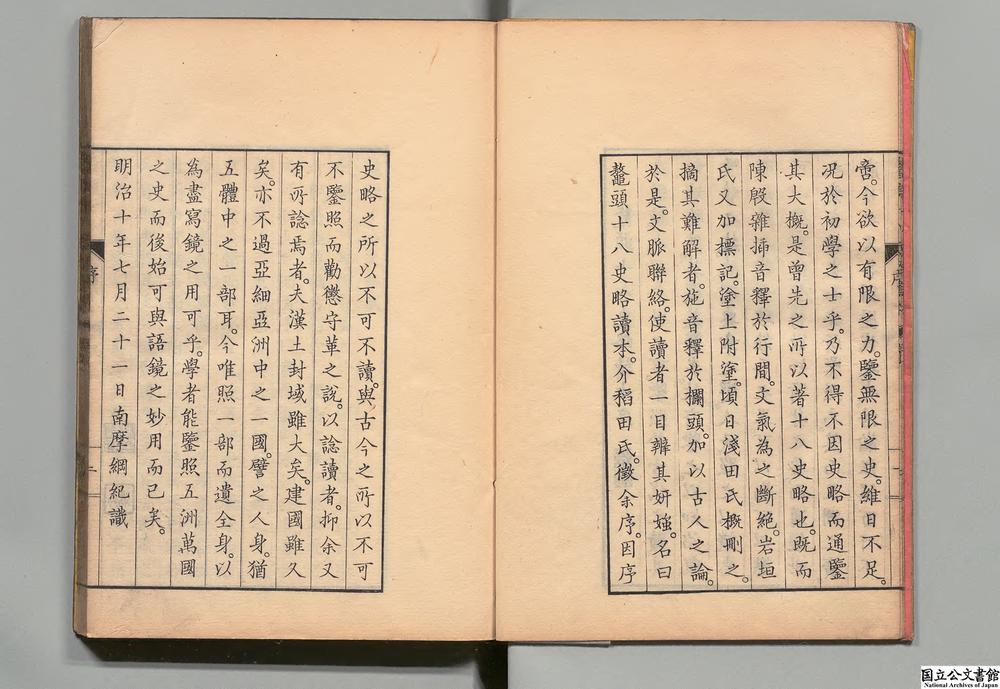 啻。今欲以有限之力。鑒無限之史。維日不足。
况於初學之士乎。乃不得不因史略而通鑒
其大概。是曾先之所以著十八史略也。既而
陳殷雜揷音釋於行間。文氣為之斷絶。岩垣
氏又加標記。塗上附塗。頃日淺田氏概刪之。
摘其難解者。施音釋於欄頭。加以古人之論。
於是。文脈聯絡。使讀者一目辨其妍媸。名曰
鼇頭十八史略讀本。介稻田氏。徵余序。因序
史略之所以不可不讀。與古今之所以不可
不鑒照而勸懲守革之說。以諗讀者。抑余又
有所諗焉者。夫漢土封域雖大矣。建國雖久
矣。亦不過亞細亞洲中之一國。譬之人身。猶
五體中之一部耳。今唯照一部而遺全身。以
為盡寫鏡之用可乎。學者能鑒照五洲萬國
之史而後始可與語鏡之妙用而已矣。
明治十年七月二十一日南摩綱紀識
序
二
国立公文書館
National Archives of Japan